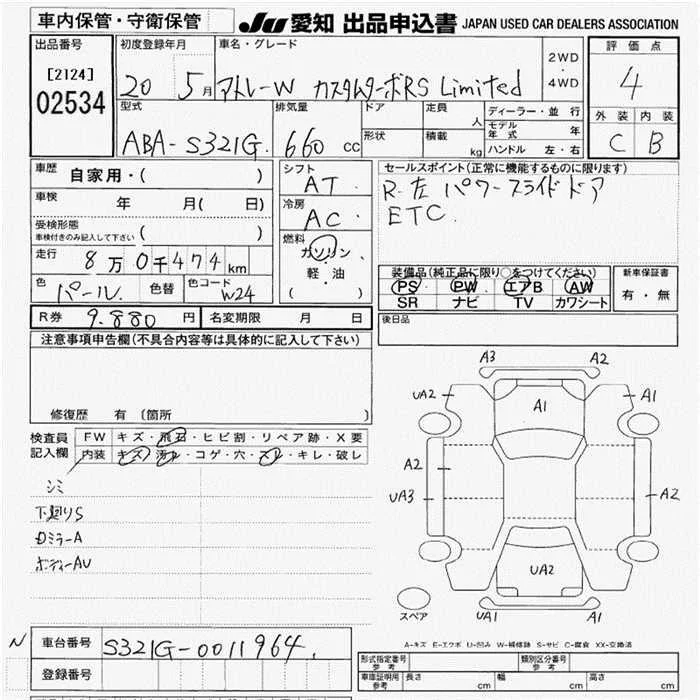 車内保管・守衛保管
JU 愛知 出品申込書 JAPAN USED CAR DEALERS ASSOCIATION
出品番号
[2124]
02534
初度登録年月 車名・グレード
20 5月 アトレーW カスタムターボRS Limited
2WD
・
4WD
評価点
4
外装 内装
C B
型式 排気量 ドア 定員 人
ABA-S321G. 660 CC
形状 積載 kg
ディーラー・並行
モデル年式 年
ハンドル 左・右
車歴
自家用・( )
車検
年 月( 日)
受検形態
車検付きのみ記入して下さい ( )
走行
8万0千474km
色 色替 色コード
パール. W24
シフト
AT
冷房
AC
燃料
ガソリン
・
軽・油
( )
セールスポイント(正常に機能するものに限ります)
R.左パワースライドドア
ETC.
装備品(純正品に限り○をつけてください)
PS PW エアB AW
SR ナビ TV カワシート
新車保証書
有・無
R券 9.880円 名変期限 月 日
後日品
注意事項申告欄(不具合内容等は具体的に記入して下さい)
修復歴 有 (箇所 )
検査員
記入欄
FW キズ・飛石・ヒビ割・リペア跡・X要
内装 キズ・汚れ・コゲ・穴・スレ・キレ・破レ
シミ
下廻りS
Dミラー A
ボディーAU
A3 A2
UA2 A1 A1
A2
UA3 A2
UA2
スペア UA1 A1
A-キズ E-エクボ U-凹み W-補修跡 S-サビ C-腐食 XX-交換済
N 車台番号 S321G-0011964.
登録番号
形式指定番号
参考
類別区分番号
参考
車庫証明用
参考
長さ cm 幅 cm 高さ cm